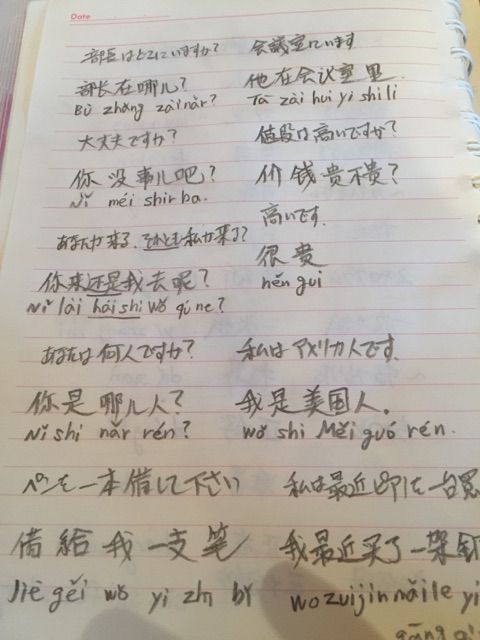 Date
部長はどこにいますか?
部长在哪儿?
Bù zhǎng zài nǎr?
大丈夫ですか?
你没事儿吧?
Nǐ méi shir ba.
あなたが来る、それとも私が来る?
你来还是我去呢?
Nǐ lài hái shi wǒ qù ne?
あなたは何人ですか?
你是哪儿人?
Nǐ shi nǎr rén?
ペンを一本借して下さい
借給我一支笔
Jiè gěi wǒ yi zhī bǐ
会議室にいます
他在会议室里.
Tā zài hui yi shi li
値段は高いですか?
价钱贵不贵?
高いです.
很贵
hěn gui
私はアメリカ人です.
我是美国人.
wǒ shi Měi guó rén.
私は最近ピアノを一台買
我最近买了一架钢
wo zui jìn mǎi le yi
gāng qi